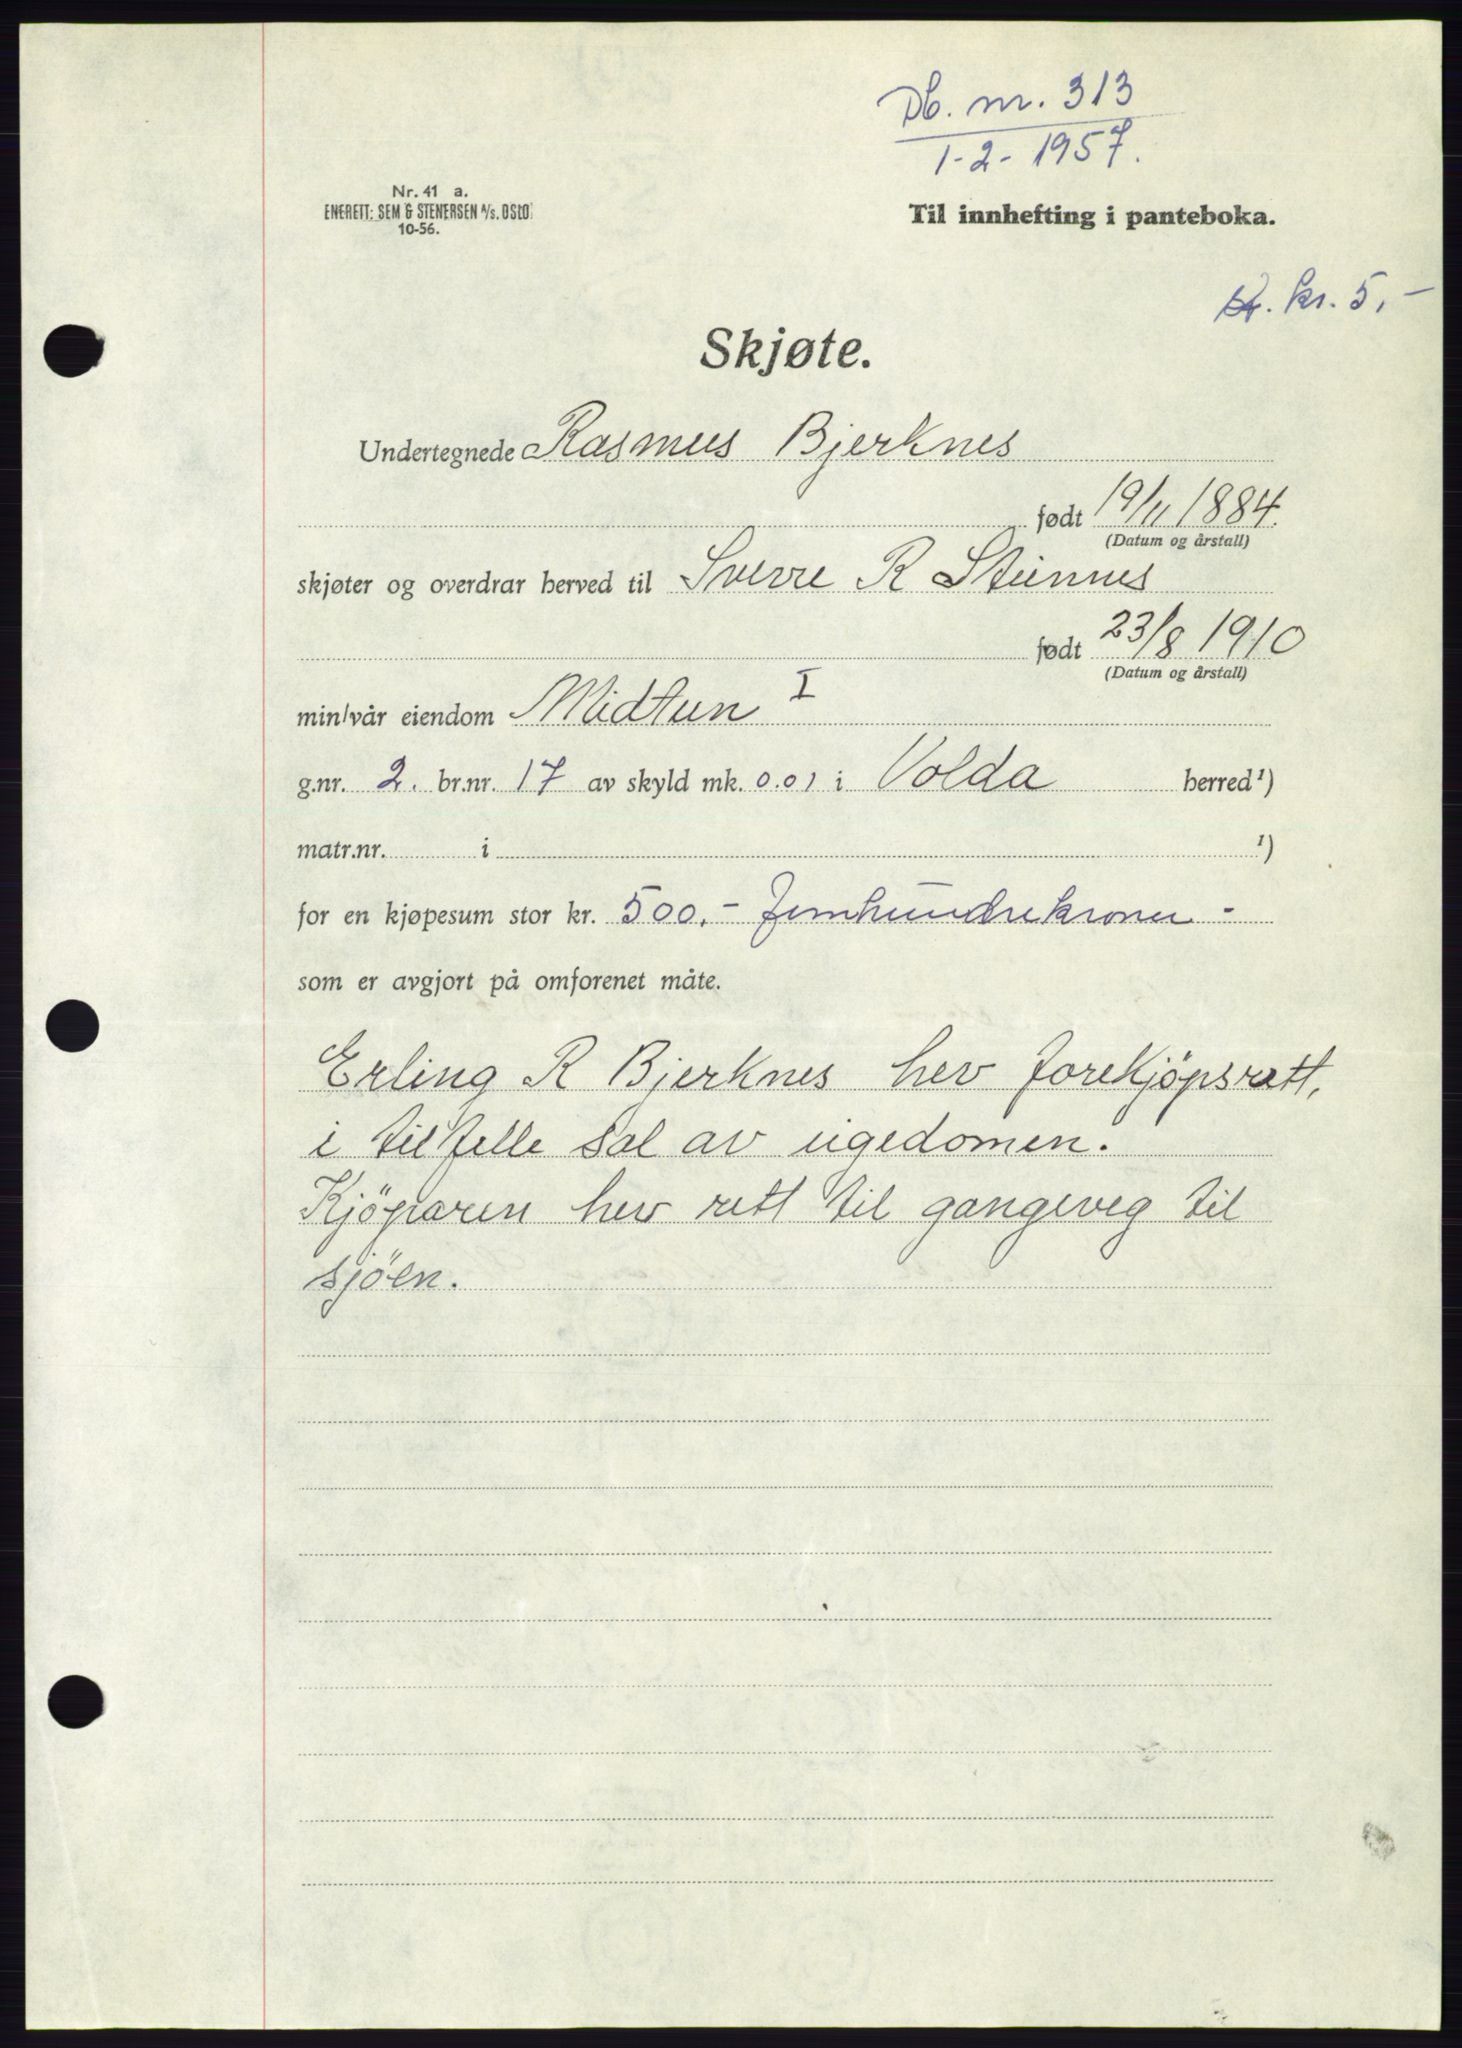 Db. nr. 313
1-2-1957.
Nr. 41 a.
ENERETT: SEM & STENERSEN A/S. OSLO
10-56.
Til innhefting i panteboka.
kr. 5,-
Skjøte.
Undertegnede Rasmus Bjerknes
født 19/11 1884.
(Datum og årstall)
skjøter og overdrar herved til Sverre R Steinnes
født 23/8 1910
(Datum og årstall)
min/vår eiendom Midtun I
g.nr. 2. br.nr. 17 av skyld mk. 0.01 i Volda herred¹)
matr.nr. i ¹)
for en kjøpesum stor kr. 500.- femhundrekroner -
som er avgjort på omforenet måte.
Erling R Bjerknes hev forekjöpsrett,
i tilfelle sal av eigedomen.
Kjöparen hev rett til gangeveg til
sjöen.